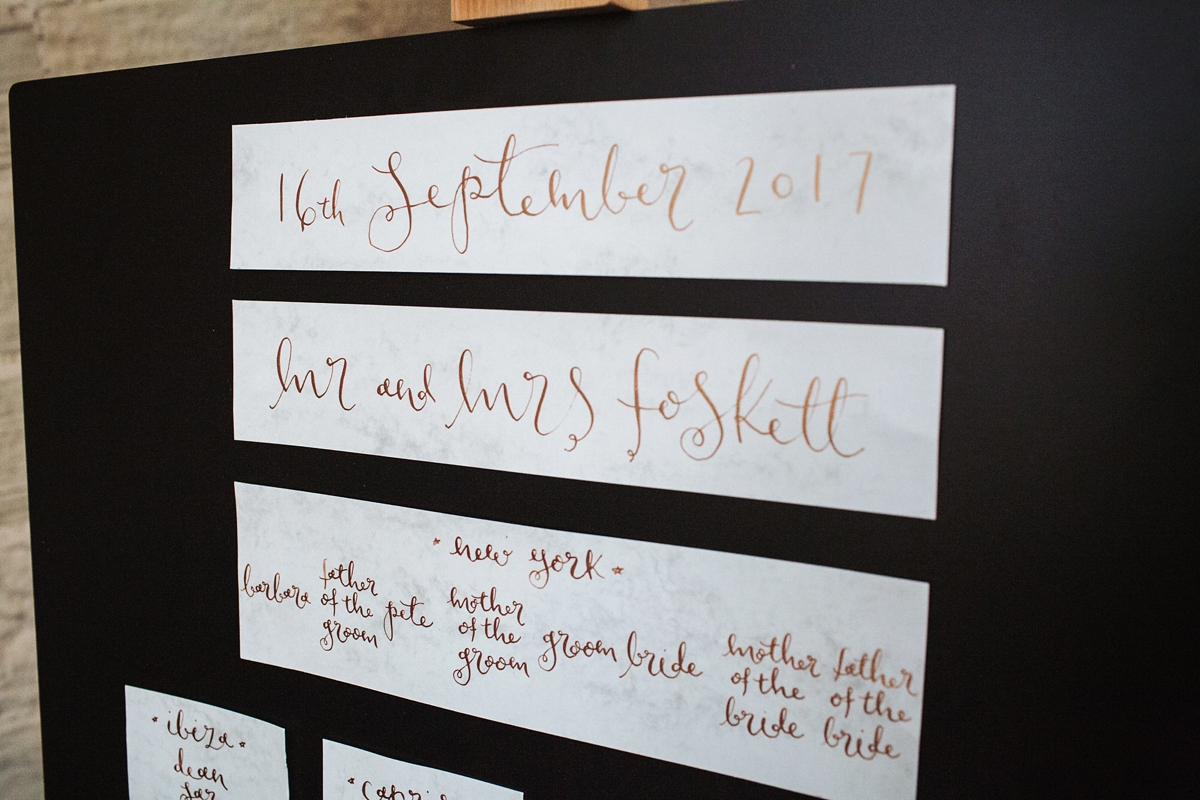 16th September 2017
mr and mrs foskett
* new york *
barbara father of the groom pete mother of the groom groom bride mother of the bride father of the bride
* ibiza *
dean